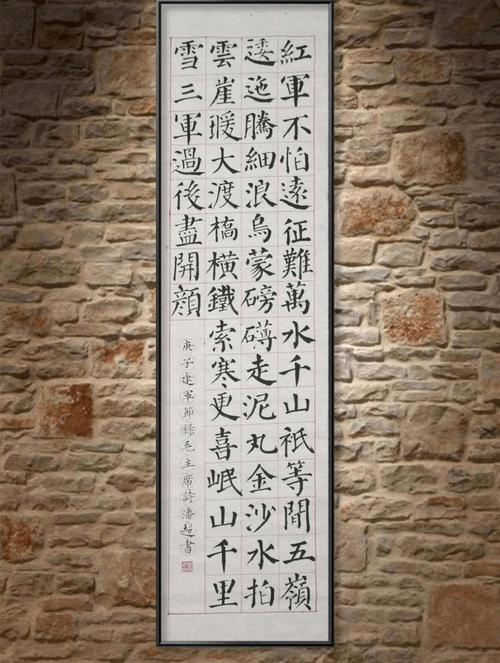 紅軍不怕遠征難萬水千山祇等間五嶺
逶迤騰細浪烏蒙磅礴走泥丸金沙水拍
雲崖暖大渡橋橫鐵索寒更喜岷山千里
雪三軍過後盡開顔
庚子建軍節録毛主席詩潘超書